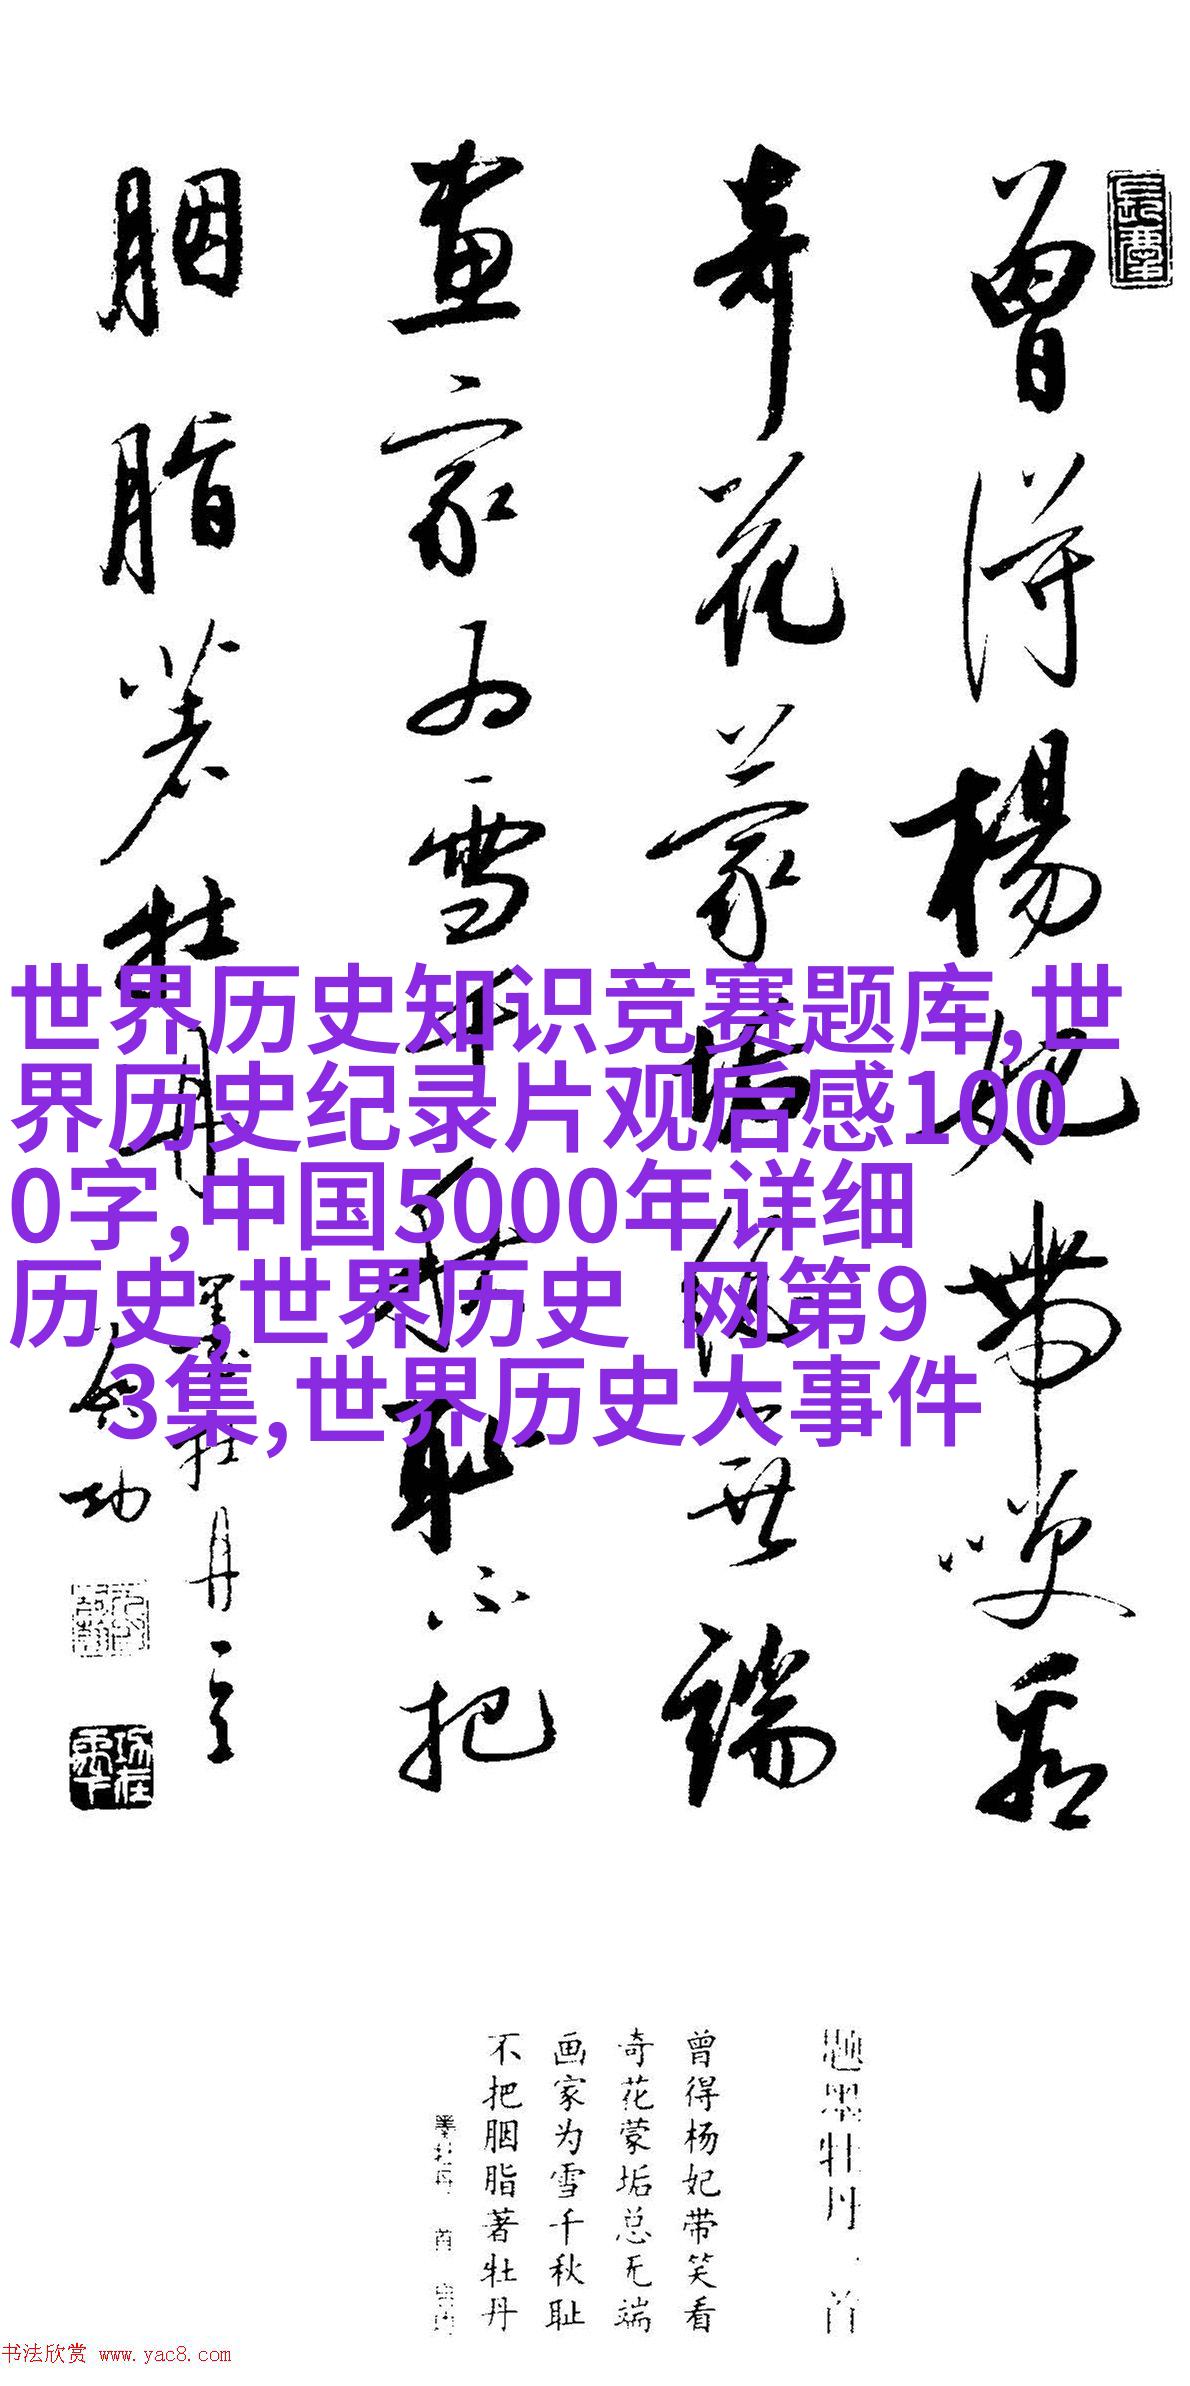 曾得楊妃带笑看
奇花蒙垢總无端
畫家为雪千秋耻不把
胭脂著牡丹
墨牡丹一首
启功
世界历史知识竞赛题库,世
界历史纪录片观后感100
0字,中国5000年详细
历史,世界历史 网第9
3集,世界历史大事件
题墨牡丹一首
曾得杨妃带笑看
奇花蒙垢总无端
画家为雪千秋耻
不把胭脂著牡丹
书法欣赏 www.yac8.com